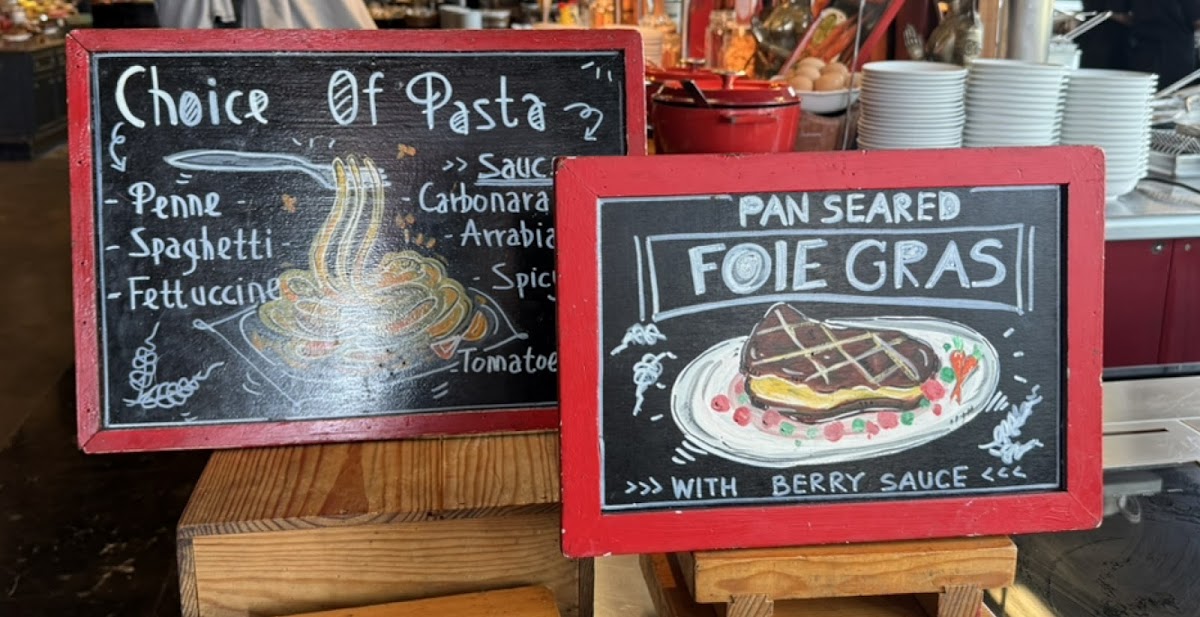 Choice Of Pasta
- Penne -
- Spaghetti -
- Fettuccine
>> Sauc
- Carbonara
- Arrabia
- Spicy
- Tomatoe
PAN SEARED
FOIE GRAS
>>> WITH BERRY SAUCE <<<